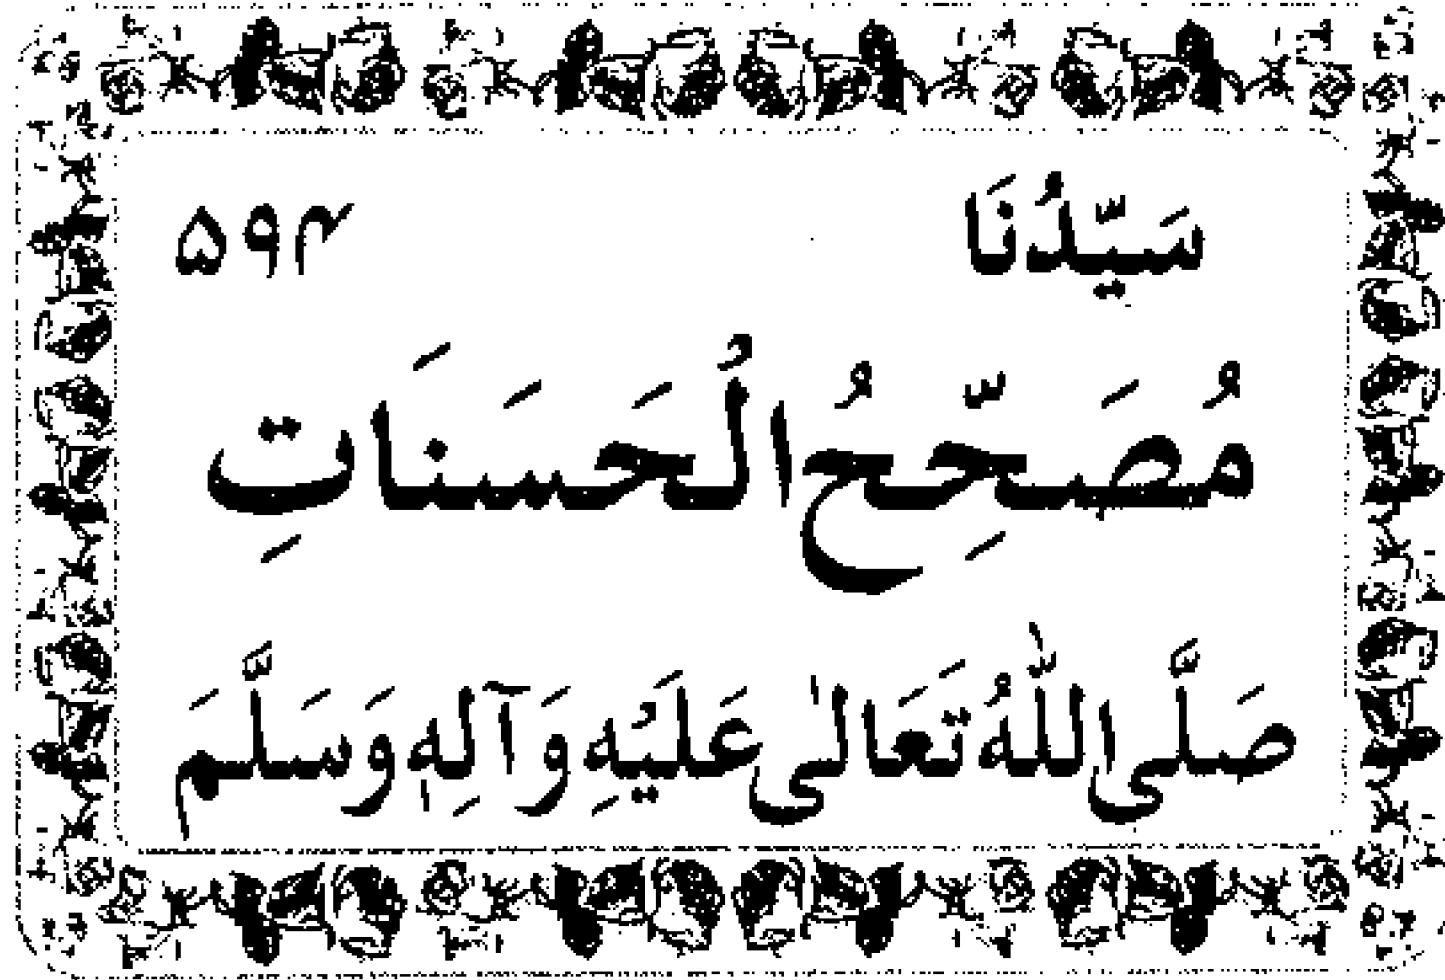 سَیِّدُنَا
مُصَحِّحُ الْحَسَنَاتِ
صَلَّی اللّٰهُ تَعَالٰی عَلَیْهِ وَآلِهٖ وَسَلَّمَ